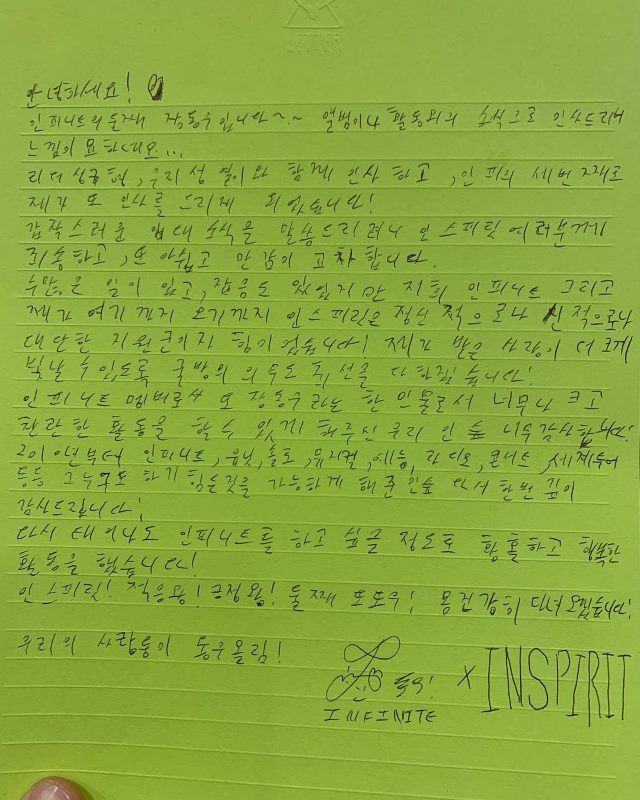 LETTER
안녕하세요!
인피니트의 둘째 장동우입니다~~ 앨범이나 활동외의 소식으로 인사드리니
느낌이 묘하네요...
리더 성규형, 우리 성열이와 함께 인사하고, 인피의 세번째로
제가 또 인사를 드리게 되었습니다!
갑작스러운 입대 소식을 말씀드리려니 인스피릿여러분께
죄송하고, 또 아쉽고 만감이 교차합니다.
수많은 일이 있고, 잡음도 있었지만 저희 인피니트 그리고
제가 여기까지 오기까지 인스피릿은 정신적으로나 신적으로나
대단한 지원군이자 힘이었습니다! 제가 받은 사랑이 더 크게
빛날 수 있도록 국방의 의무도 최선을 다하겠습니다!
인피니트 멤버로서 또 장동우라는 한 인물로서 너무나 크고
찬란한 활동을 할 수 있게 해주신 우리 인숲 너무감사합니다!
2010년부터 인피니트, 유닛, 솔로, 뮤지컬, 예능, 라디오, 콘서트, 세계투어
등등 그누구도 하기 힘든것을 가능하게 해준 인숲 다시 한번 깊이
감사드립니다!
다시 태어나도 인피니트를 하고 싶을 정도로 황홀하고 행복한
활동을 했습니다!
인스피릿! 적응왕! 긍정왕! 둘째 또또우! 몸건강히 다녀오겠습니다!
우리의 사랑둥이 동우올림!
INFINITE
X INSPIRIT